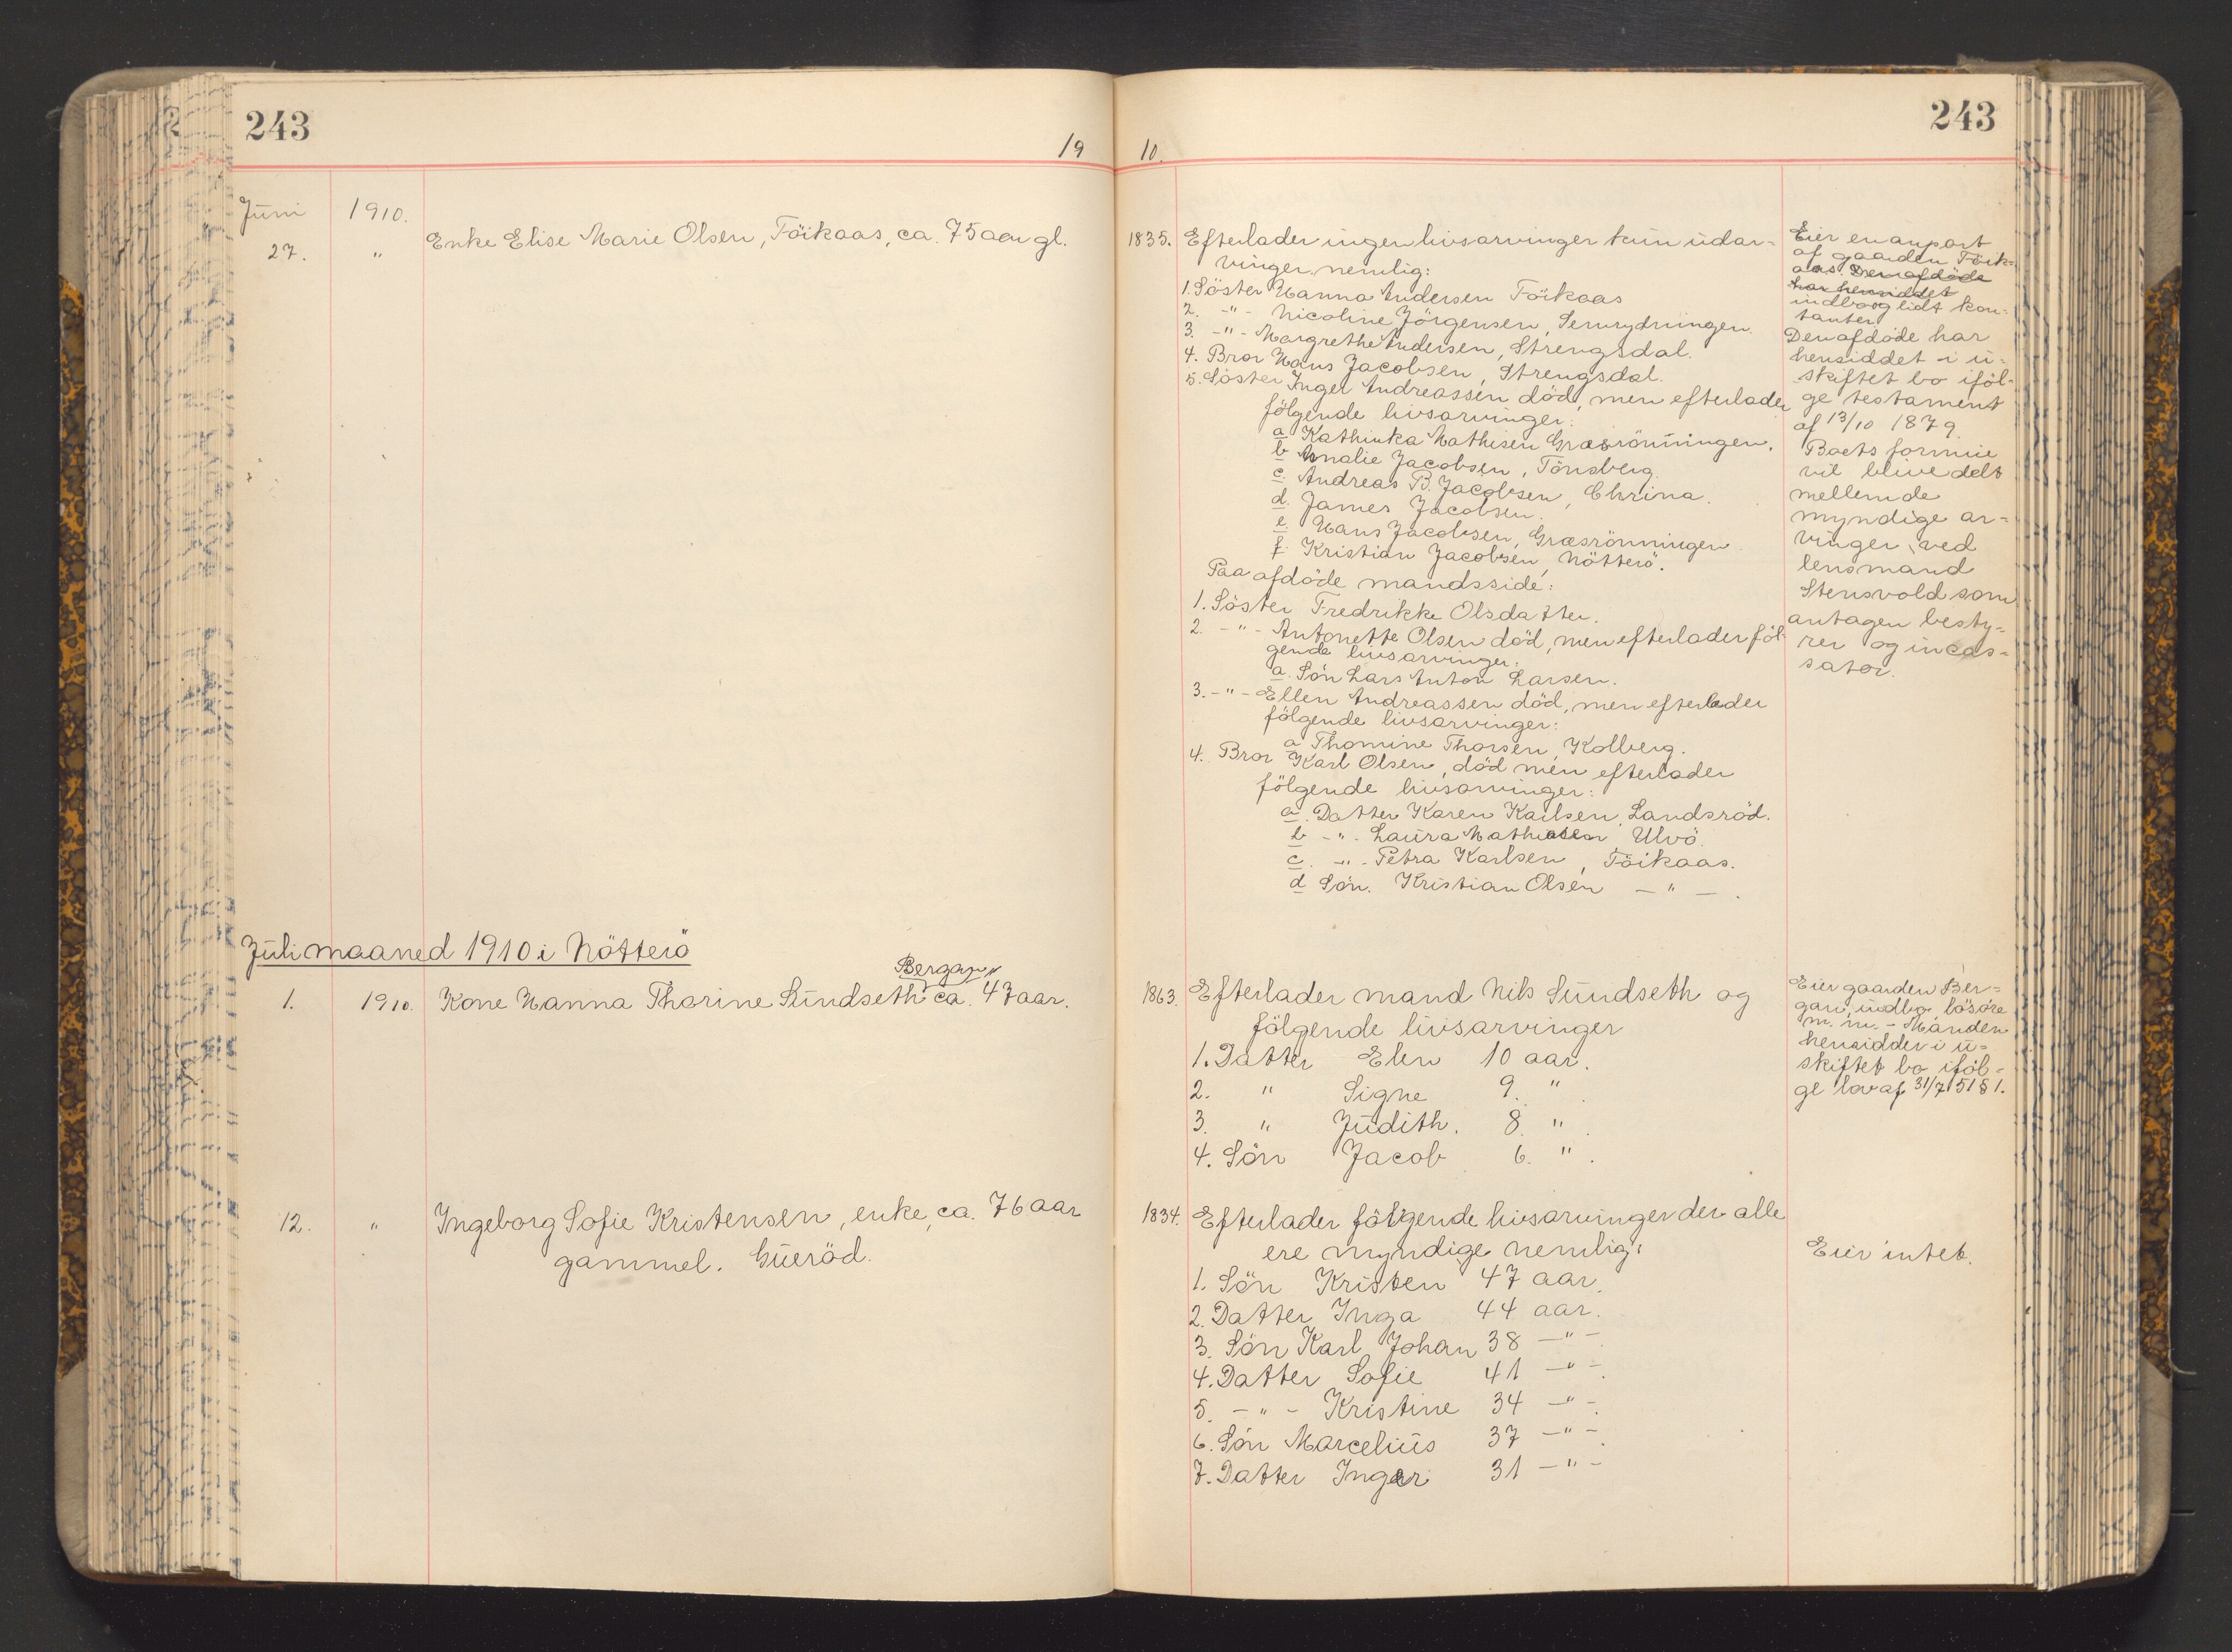 243
243
19 10.
Juni 1910.
27. " Enke Elise Marie Olsen, Föikaas, ca. 75 aar gl.
1835. Efterlader ingen livsarvinger kun udar-
vinger nemlig:
1. Söster Hanna Andersen Föikaas
2. -"- Nicoline Jörgensen, Semrydningen.
3. -"- Margrethe Andersen, Strengsdal.
4. Bror Hans Jacobsen, Strengsdal.
5. Söster Inger Andreassen död, men efterlader
fölgende livsarvinger:
a Kathinka Mathisen Græsrönningen.
b Amalie Jacobsen, Tönsberg.
c. Andreas B. Jacobsen, Chrina.
d. James Jacobsen.
e. Hans Jacobsen, Græsrönningen.
f. Kristian Jacobsen, Nötterö.
Paa afdöde mandsside:
1. Söster Fredrikke Olsdatter.
2. -"- Antonette Olsen död, men efterlader föl-
gende livsarvinger:
a. Sön Lars Anton Larsen.
3. -"- Ellen Andreassen död, men efterlader
fölgende livsarvinger:
a Thomine Thorsen, Kolberg.
4. Bror Karl Olsen, död men efterlader
fölgende livsarvinger:
a. Datter Karen Karlsen, Landsröd.
b -"- Laura Mathiesen Ulvö.
c. -"- Petra Karlsen, Föikaas.
d Sön. Kristian Olsen -"-.
Eier en anpart
af gaarden Föik-
aas. Den afdöde
har hensiddet
indbo og lidt kon-
tanter.
Den afdöde har
hensiddet i u-
skiftet bo iföl-
ge testament
af 13/10 1879.
Boets formue
vil blive delt
mellem de
myndige ar-
vinger ved
lensmand
Stensvold som
antagen besty-
rer og incas-
sator.
Juli maaned 1910 i Nötterö
Bergan
1. 1910. Kone Hanna Thorine Sundseth ca. 47 aar.
1863. Efterlader mand Nils Sundseth og
fölgende livsarvinger
1. Datter Elen 10 aar.
2. " Signe 9. "
3. " Judith. 8. "
4. Sön Jacob 6. "
Eier gaarden Ber-
gan, indbo, lösöre
m. m. - Manden
hensidder i u-
skiftet bo iföl-
ge lov af 31/7 51 § 1.
12. " Ingeborg Sofie Kristensen, enke, ca. 76 aar
gammel. Gueröd.
1834. Efterlader fölgende livsarvinger der alle
ere myndige nemlig:
1. Sön Kristen 47 aar.
2. Datter Inga 44 aar.
3. Sön Karl Johan 38 -"-
4. Datter Sofie 41 -"-
5. -"- Kristine 34 -"-
6. Sön Marcelius 37 -"-
7. Datter Inger 31 -"-
Eier intet.